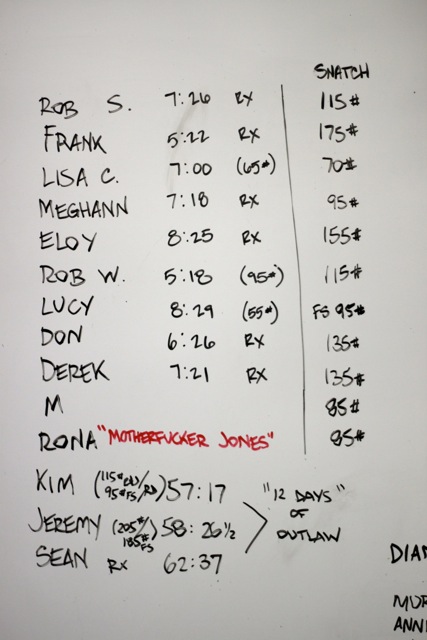 SNATCH
ROB S. 7:26 RX 115#
FRANK 5:22 RX 175#
LISA C. 7:00 (65#) 70#
MEGHANN 7:18 RX 95#
ELOY 8:25 RX 155#
ROB W. 5:18 (95#) 115#
LUCY 8:29 (55#) FS 95#
DON 6:26 RX 135#
DEREK 7:21 RX 135#
M 85#
RONA "MOTHERFUCKER JONES" 85#
KIM (115# / 95# FS/RX) 57:17
JEREMY (205#/ 185# FS) 58:26½
SEAN RX 62:37
"12 DAYS"
OF
OUTLAW
DIA
MUR
ANNI